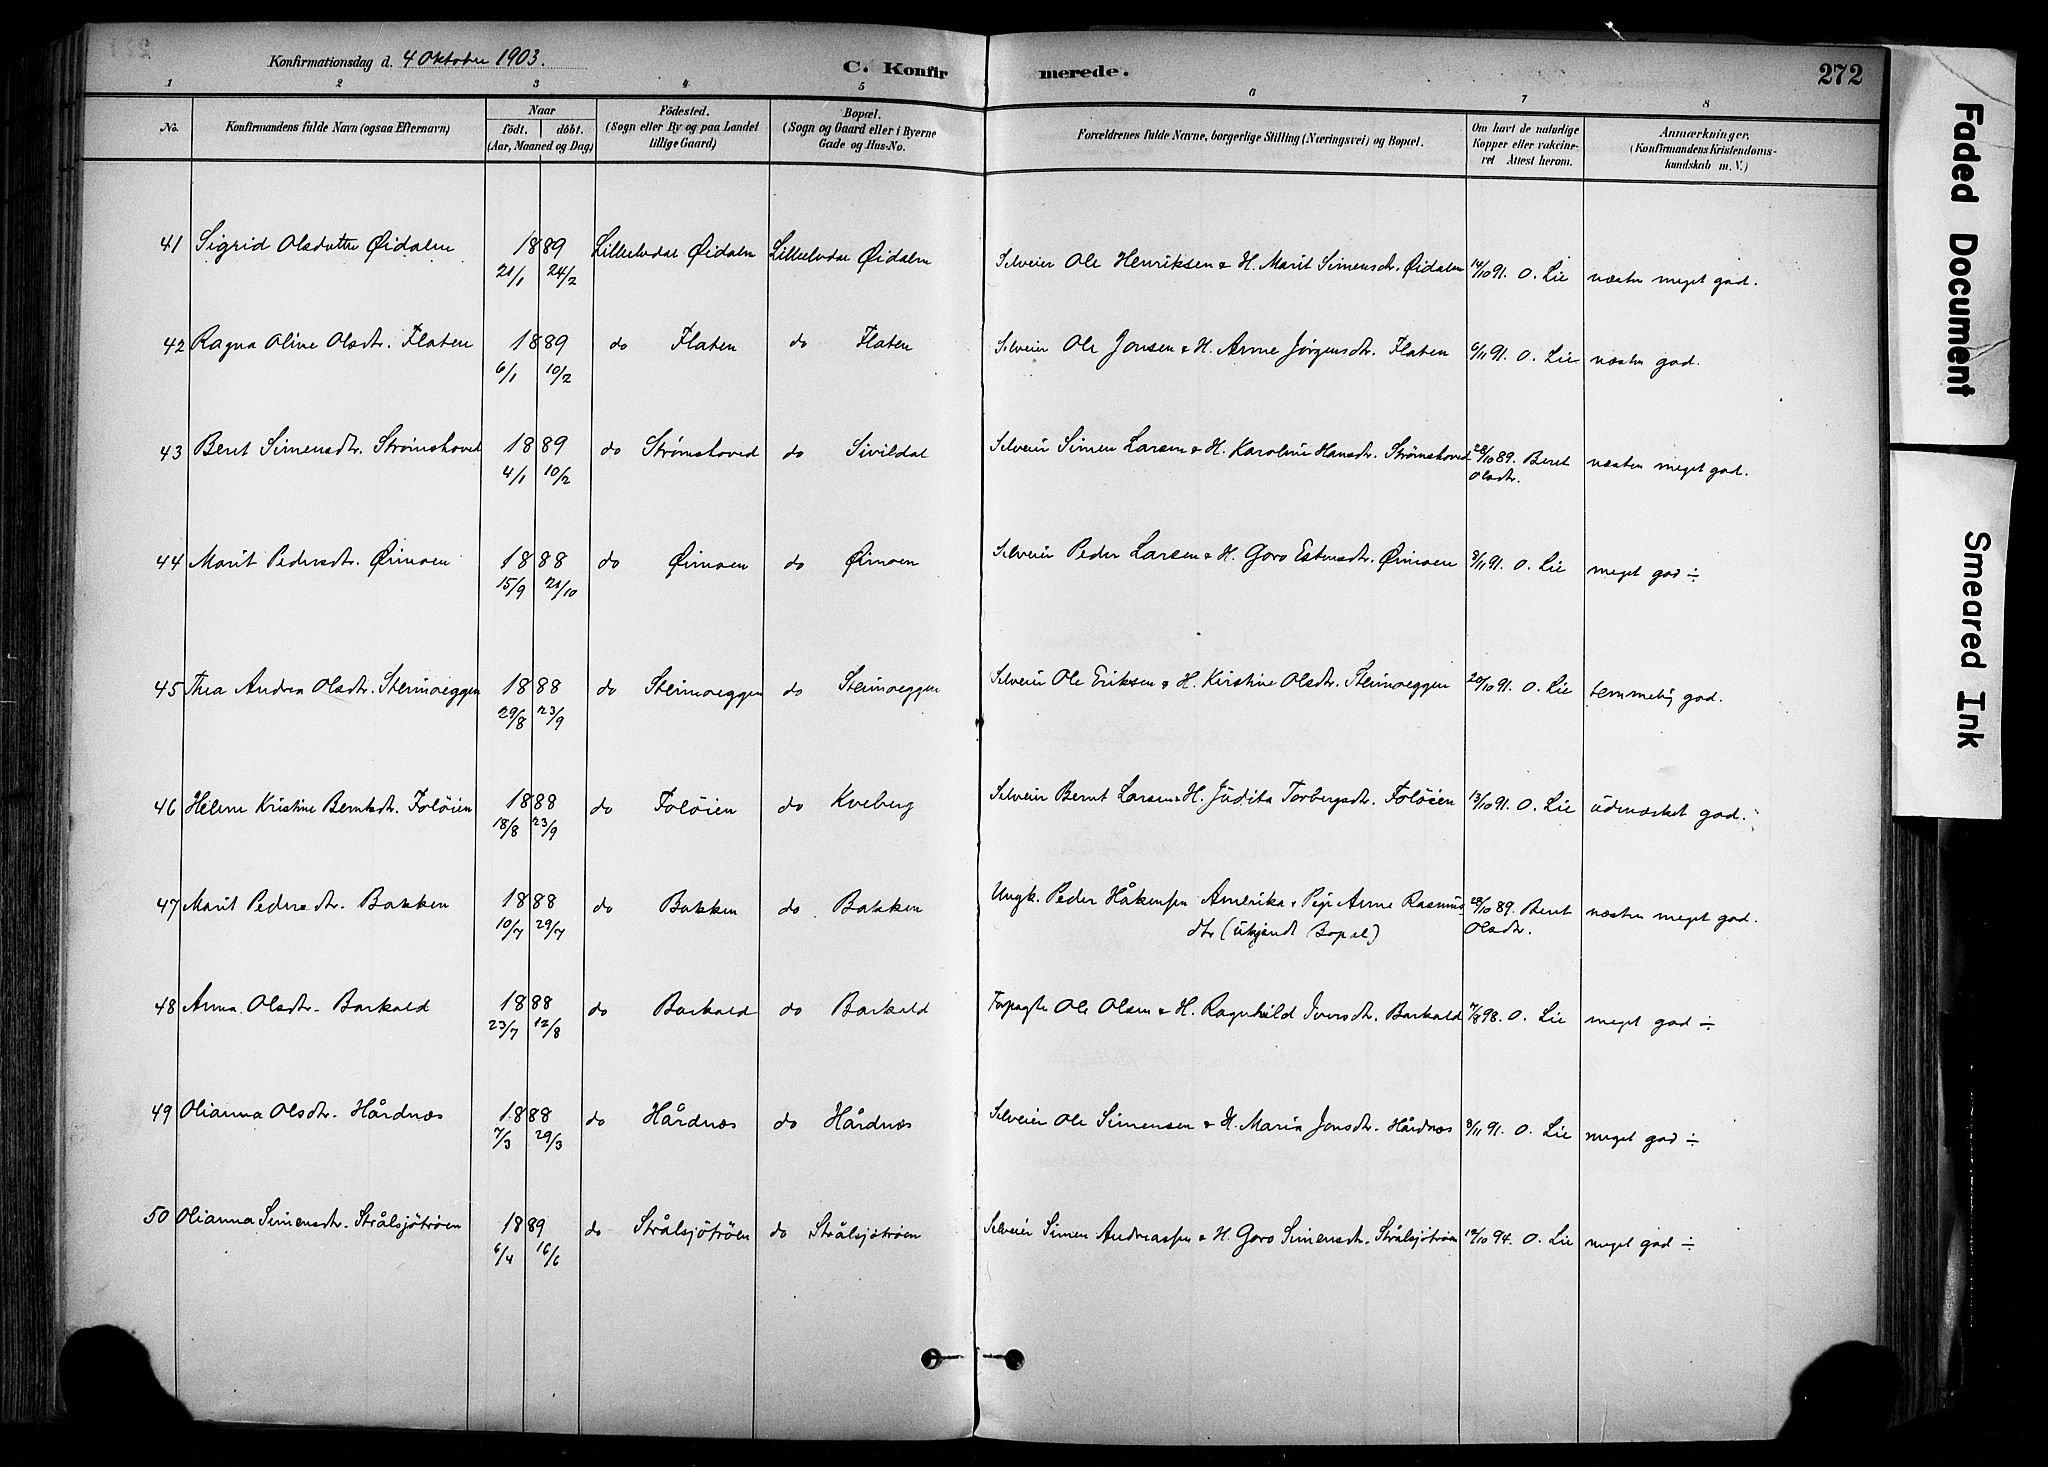 Konfirmationsdag d. 4 Oktober 1903.
C. Konfirmerede.
272
1 2 3 4 5 6 7 8
No.
Konfirmandens fulde Navn (ogsaa Efternavn)
Naar
födt. döbt.
(Aar, Maaned og Dag)
Födested.
(Sogn eller By og paa Landet
tillige Gaard)
Bopæl.
(Sogn og Gaard eller i Byerne
Gade og Hus-No.
Forældrenes fulde Navne, borgerlige Stilling (Næringsvei) og Bopæl.
Om havt de naturlige
Kopper eller vakcine-
ret Attest herom.
Anmærkninger.
(Konfirmandens Kristendoms-
kundskab m. V.)
41 Sigrid Olsdatter Øidalen 1889 Lilleelvdal Øidalen Lilleelvdal Øidalen Selveier Ole Henriksen & H. Marit Simensdtr. Øidalen 14/10 91. O. Lie næsten meget god.
21/1 24/2
42 Ragna Oline Olsdtr. Flaten 1889 do Flaten do Flaten Selveier Ole Jonsen & H. Anne Jørgensdtr. Flaten 6/11 91. O. Lie næsten god.
6/1 10/2
43 Beret Simensdtr. Strømshoved 1889 do Strømshoved do Sivildal Selveier Simen Larsen & H. Karoline Hansdtr. Strømshoved 28/10 89. Beret næsten meget god.
4/1 10/2 Olsdtr.
44 Marit Pedersdtr. Ørimoen 1888 do Ørimoen do Ørimoen Selveier Peder Larsen & H. Goro Estensdtr. Ørimoen 8/11 91. O. Lie meget god ÷
15/9 21/10
45 Thea Andrea Olsdtr. Steimoeggen 1888 do Steimoeggen do Steimoeggen Selveier Ole Eriksen & H. Kirstine Olsdtr. Steimoeggen 20/10 91. O. Lie temmelig god.
29/8 23/9
46 Helene Kristine Berntsdtr. Foløien 1888 do Foløien do Kveberg Selveier Bernt Larsen & H. Judita Torbergsdtr. Foløien 13/10 91. O. Lie udmærket god.
18/8 23/9
47 Marit Pedersdtr. Bakken 1888 do Bakken do Bakken Ungk. Peder Håkensen Amerika & Pige Anne Rasmus 28/10 89. Beret næsten meget god.
10/7 29/7 dtr (ukjendt Bopæl) Olsdtr.
48 Anna Olsdtr. Barkald 1888 do Barkald do Barkald Forpagter Ole Olsen & H. Ragnhild Iversdtr. Barkald 7/8 98. O. Lie meget god ÷
23/7 12/8
49 Olianna Olsdtr. Hårdnæs 1888 do Hårdnæs do Hårdnæs Selveier Ole Simensen & H. Maria Jonsdtr. Hårdnæs 8/11 91. O. Lie meget god ÷
7/3 29/3
50 Olianna Simensdtr. Strålsjötrøen 1889 do Strålsjötrøen do Strålsjötrøen Selveier Simen Andreassen & H. Goro Simensdtr. Strålsjötrøen 12/10 94. O. Lie meget god ÷
6/4 16/6
Faded Document
Smeared Ink